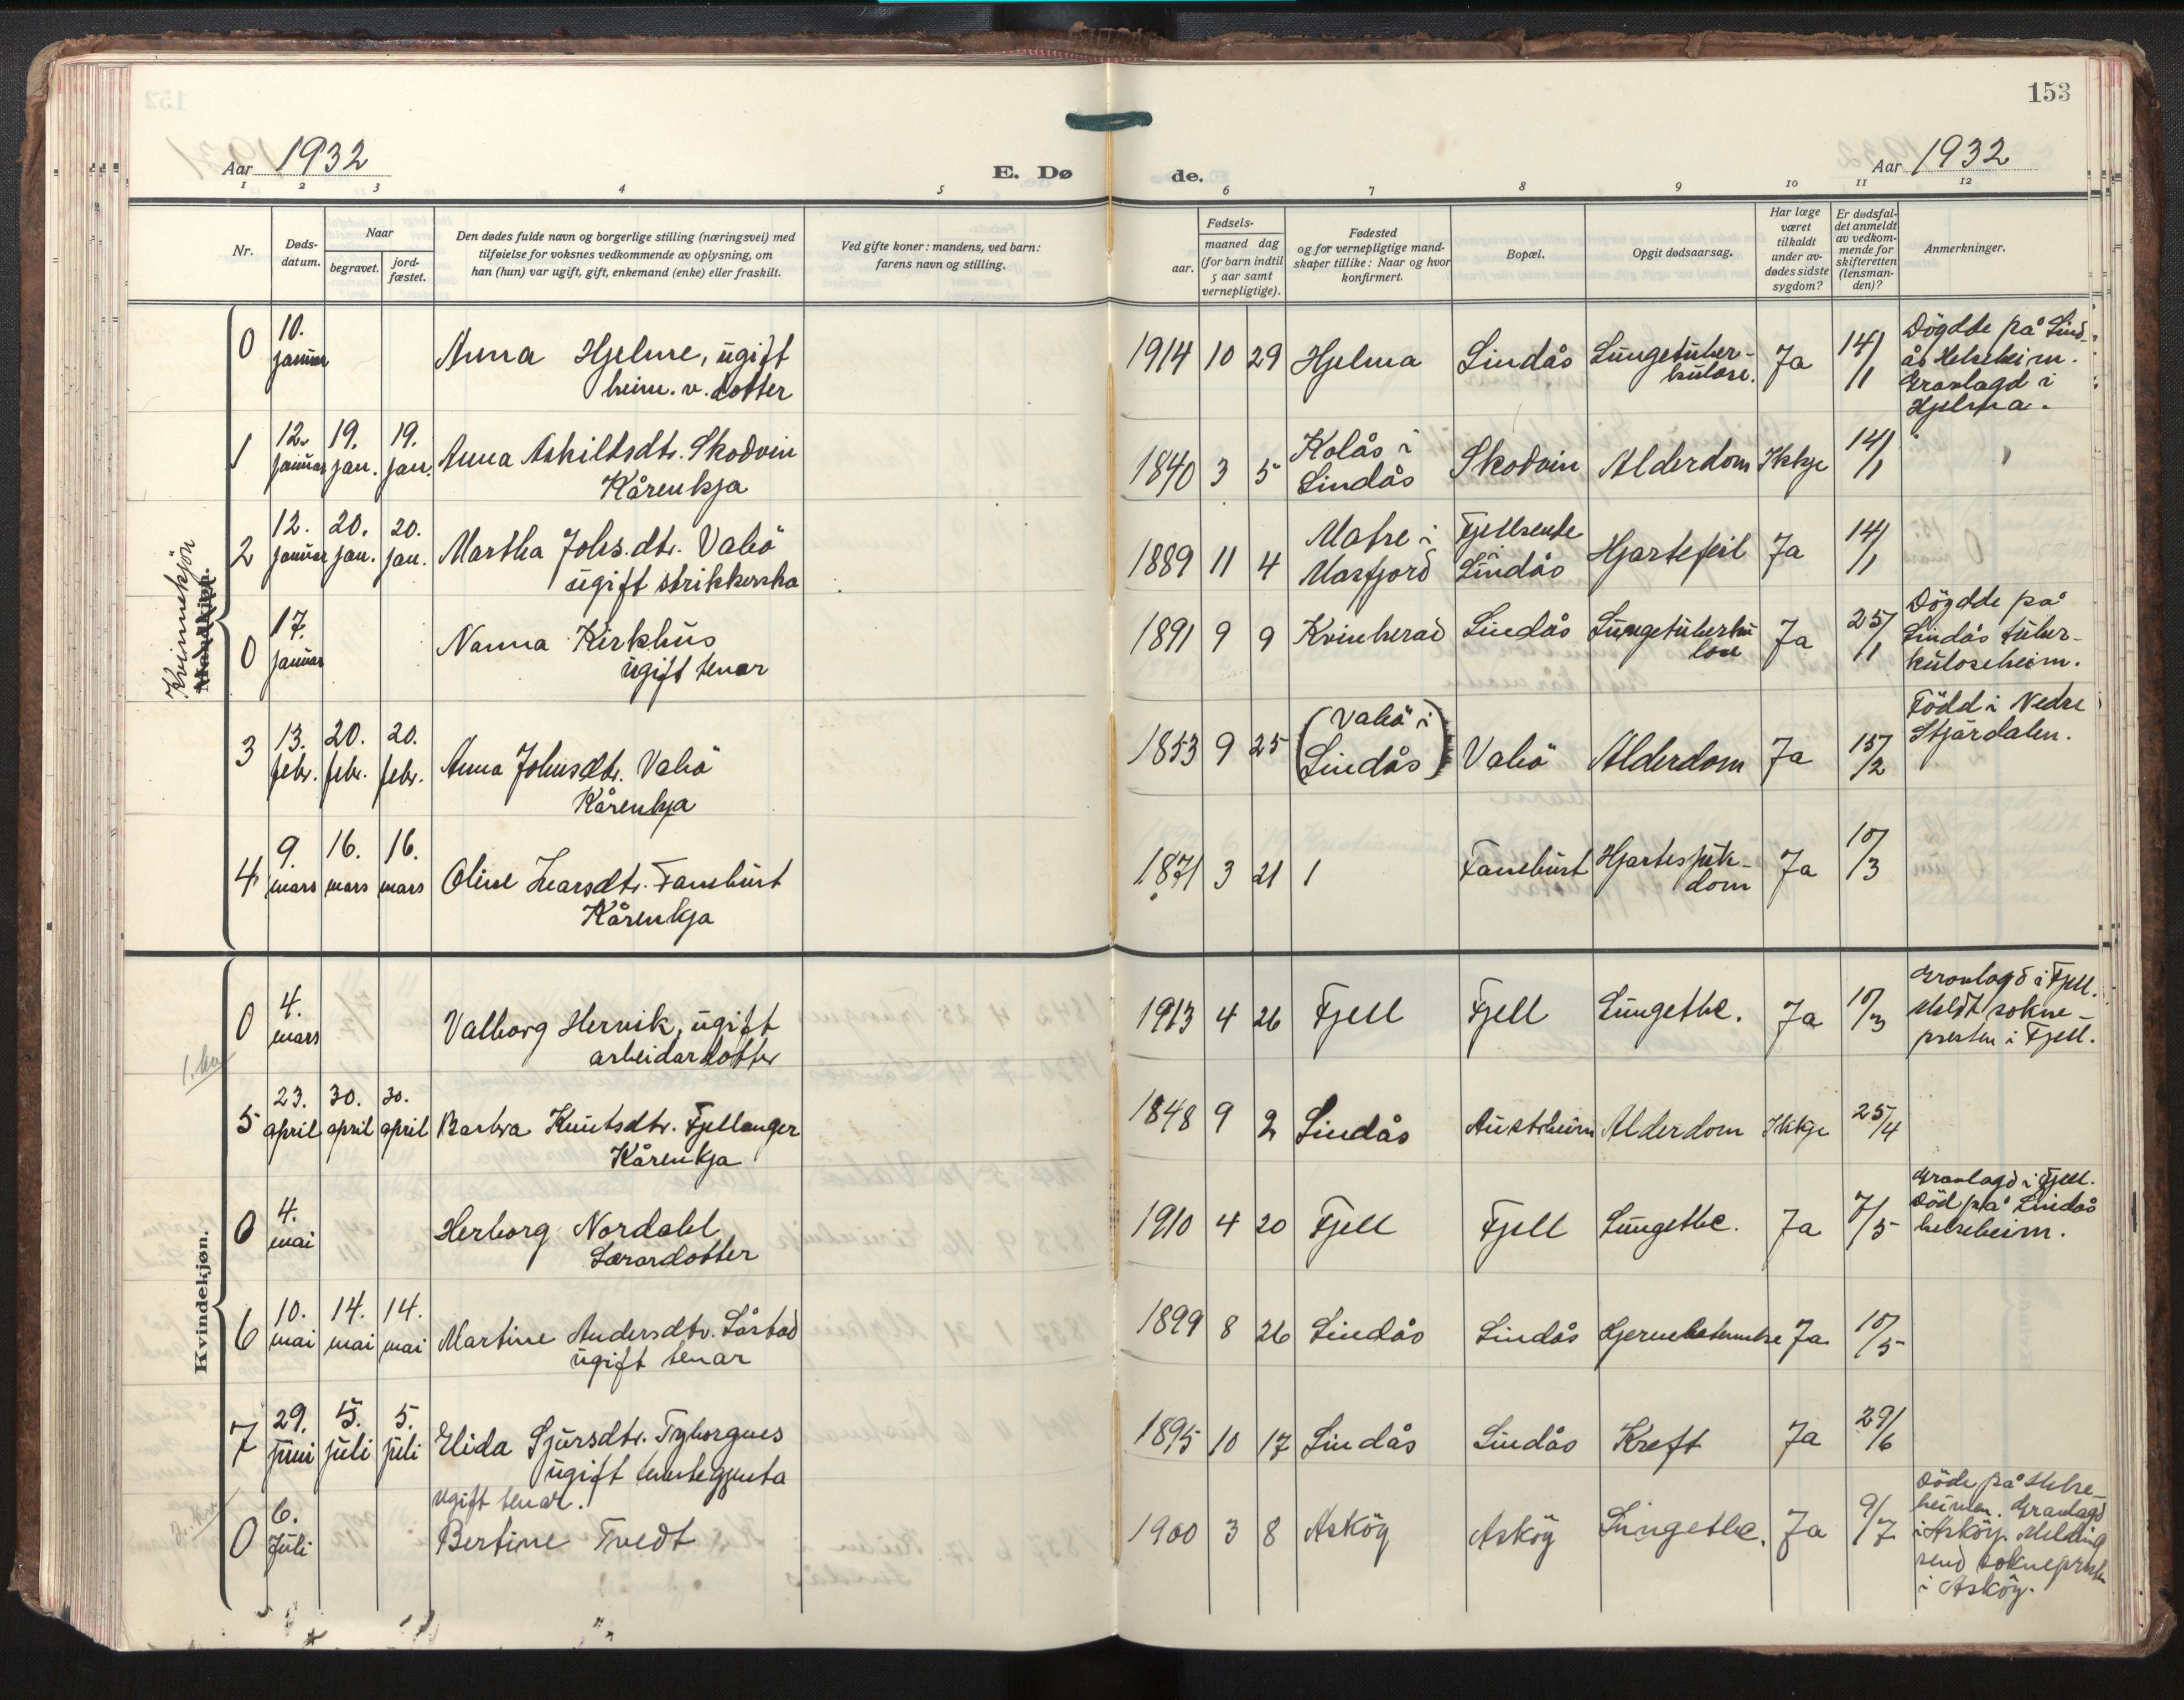 153
Aar 1932
E. Dø
de.
Aar 1932
1 2 3 4 5 6 7 8 9 10 11 12
Nr.
Døds-
datum.
Naar
begravet.
jord-
fæstet.
Den dødes fulde navn og borgerlige stilling (næringsvei) med
tilføielse for voksnes vedkommende av oplysning, om
han (hun) var ugift, gift, enkemand (enke) eller fraskilt.
Ved gifte koner: mandens, ved barn:
farens navn og stilling.
Fødsels-
aar.
maaned dag
(for barn indtil
5 aar samt
vernepligtige).
Fødested
og for vernepligtige mand-
skaper tillike: Naar og hvor
konfirmert.
Bopæl.
Opgit dødsaarsag.
Har læge
været
tilkaldt
under av-
dødes sidste
sygdom?
Er dødsfal-
det anmeldt
av vedkom-
mende for
skifteretten
(lensman-
den)?
Anmerkninger.
Kvinnekjön
Mandkjøn.
0 10. januar Anna Hjelme, ugift
heim. v. dotter
1914 10 29 Hjelma Lindås Lungetuber-
kulose. Ja 14/1
Dögdde på Lind-
ås Helseheim.
Gravlagd i
Hjelma.
1 12. januar 19. jan. 19. jan. Anna Askiltsdtr. Skodvin
Kårenkja
1840 3 5 Kolås i
Lindås Skodvin Alderdom Ikkje 14/1
2 12. januar 20. jan. 20. jan. Martha Johs.dtr. Valsö
ugift strikkerska
1889 11 4 Matre i
Masfjord Fjellsende
i Lindås Hjartefeil Ja 14/1
0 17. januar Nanna Kirkhus
ugift tenar
1891 9 9 Kvinherad Lindås Lungetuberku
lose Ja 25/1
Dögdde på
Lindås tuber-
kuloseheim.
3 13. febr. 20. febr. 20. febr. Anna Johnsdtr. Valsö
Kårenkja
1853 9 25 (Valsö i
Lindås) Valsö Alderdom Ja 15/2
Född i Nedre
Stjärdalen.
4 9. mars 16. mars 16. mars Oline Ivarsdtr. Fanebust
Kårenkja
1871 3 21 1 Fanebust Hjartesjuk-
dom Ja 10/3
Kvindekjøn.
0 4. mars Valborg Hernik, ugift
arbeidardotter
1913 4 26 Fjell Fjell Lungetbc. Ja 10/3
Gravlagd i Fjell.
Meldt sokne-
presten i Fjell.
5 23. april 30. april 30. april Barbra Knutsdtr. Fjellanger
Kårenkja
1848 9 2 Lindås Austrheim Alderdom Ikkje 25/4
0 4. mai Herborg Nordahl
Lærardotter
1910 4 20 Fjell Fjell Lungetbc. Ja 7/5
Gravlagd i Fjell.
Död på Lindås
helseheim.
6 10. mai 14. mai 14. mai Martine Andersdtr. Låstad
ugift tenar
1899 8 26 Lindås Lindås Ja 10/5
7 29. juni 5. juli 5. juli Elida Sjursdtr. Fyborgnes
ugift tenestegjenta
1895 10 17 Lindås Lindås Kreft Ja 29/6
0 6. Juli ugift tenar.
Bertine Tvedt
1900 3 8 Asköy Asköy Lungetbc. Ja 9/7
Döde på Helse-
heimen. Gravlagd
i Asköy. Melding
send sokneprest
i Asköy.